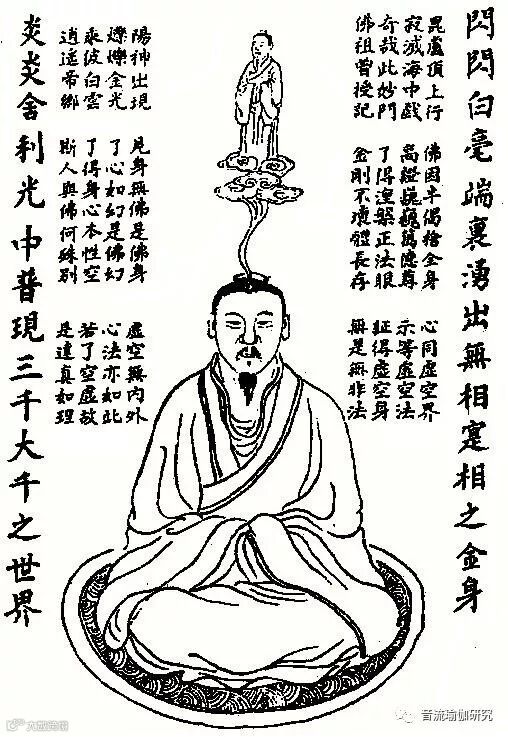 閃閃白毫端裏湧出無相寔相之金身
毘盧頂上行
寂滅海中戲
奇哉此妙門
佛祖曾授記
佛因半偈捨全身
高證巍巍萬德尊
了得涅槃正法眼
金剛不壞體長存
心同虛空界
示等虛空法
証得虛空身
無是無非法
陽神出現
爍爍金光
乘彼白雲
逍遙帝鄉
見身無佛是佛身
了心如幻是佛幻
了得身心本性空
斯人與佛何殊別
虛空無內外
心法亦如此
若了空虛故
是達真如理
炎炎舍利光中普現三千大千之世界
音流瑜伽研究